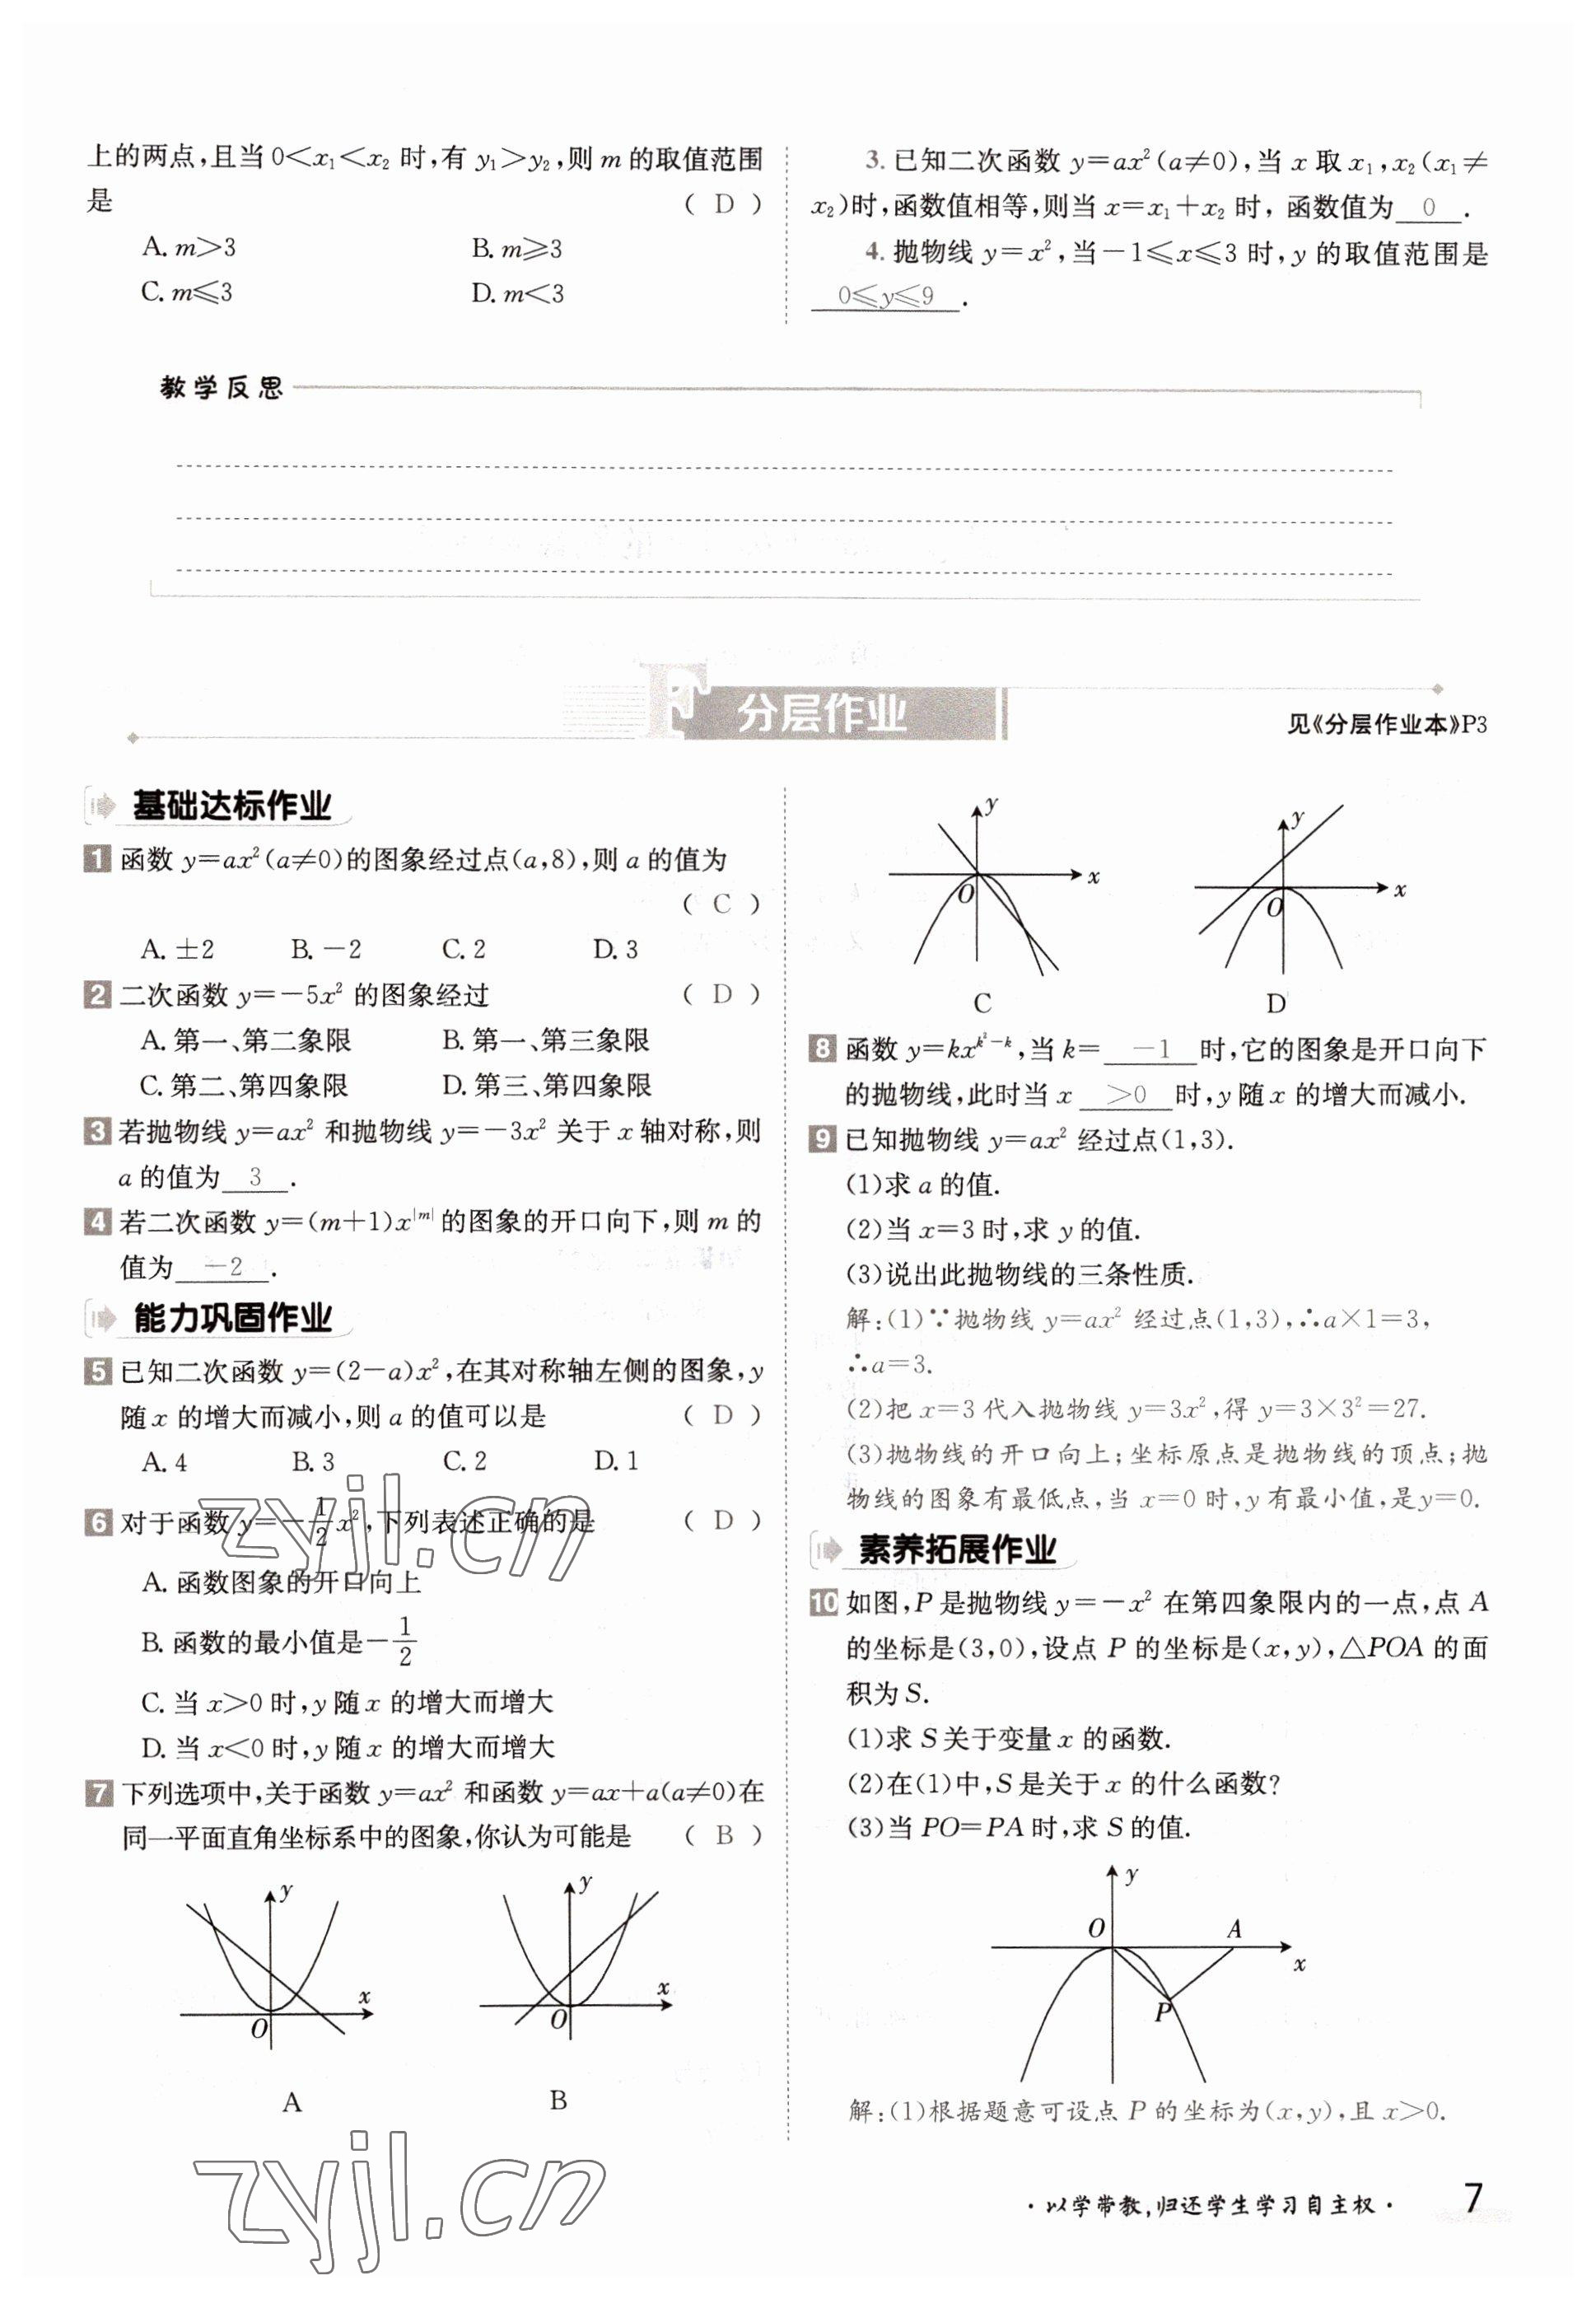 上的两点,且当0<x₁<x₂时,有y₁>y₂,则m的取值范围
是 ( D )
A. m>3 B. m≥3
C. m≤3 D. m<3
3. 已知二次函数y=ax²(a≠0),当x取x₁,x₂(x₁≠
x₂)时,函数值相等,则当x=x₁+x₂时,函数值为 0 .
4. 抛物线y=x²,当-1≤x≤3时,y的取值范围是
0≤y≤9 .
教学反思
F 分层作业
见《分层作业本》P3
基础达标作业
1 函数y=ax²(a≠0)的图象经过点(a,8),则a的值为
( C )
A. ±2 B. -2 C. 2 D. 3
2 二次函数y=-5x²的图象经过 ( D )
A. 第一、第二象限 B. 第一、第三象限
C. 第二、第四象限 D. 第三、第四象限
3 若抛物线y=ax²和抛物线y=-3x²关于x轴对称,则
a的值为 3 .
4 若二次函数y=(m+1)x^|m|的图象的开口向下,则m的
值为 -2 .
能力巩固作业
5 已知二次函数y=(2-a)x²,在其对称轴左侧的图象,y
随x的增大而减小,则a的值可以是 ( D )
A. 4 B. 3 C. 2 D. 1
6 对于函数y=-1/2x²,下列表述正确的是 ( D )
A. 函数图象的开口向上
B. 函数的最小值是-1/2
C. 当x>0时,y随x的增大而增大
D. 当x<0时,y随x的增大而增大
7 下列选项中,关于函数y=ax²和函数y=ax+a(a≠0)在
同一平面直角坐标系中的图象,你认为可能是 ( B )
y x O
y x O
A B
y x O
y x O
C D
8 函数y=kx^(k²-k),当k= -1 时,它的图象是开口向下
的抛物线,此时当x >0 时,y随x的增大而减小.
9 已知抛物线y=ax²经过点(1,3).
(1)求a的值.
(2)当x=3时,求y的值.
(3)说出此抛物线的三条性质.
解:(1)∵抛物线y=ax²经过点(1,3),∴a×1=3,
∴a=3.
(2)把x=3代入抛物线y=3x²,得y=3×3²=27.
(3)抛物线的开口向上;坐标原点是抛物线的顶点;抛
物线的图象有最低点,当x=0时,y有最小值,是y=0.
素养拓展作业
10 如图,P是抛物线y=-x²在第四象限内的一点,点A
的坐标是(3,0),设点P的坐标是(x,y),△POA的面
积为S.
(1)求S关于变量x的函数.
(2)在(1)中,S是关于x的什么函数?
(3)当PO=PA时,求S的值.
y
O A
x
P
解:(1)根据题意可设点P的坐标为(x,y),且x>0.
zyjl.cn
zyjl.cn
·以学带教,归还学生学习自主权· 7